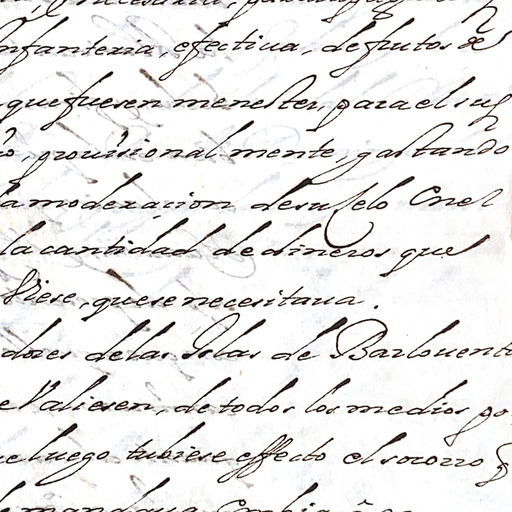 Infanteria, efectiua, de frutos de
que fuesen menester, para el su
prouisional mente, gastando
la moderacion de su selo En el
la cantidad de dineros que
Viese, que se necesitaua.
dores de las Yslas de Barlouento
Valiesen, de todos los medios po
luego tubiese effecto el socorro q